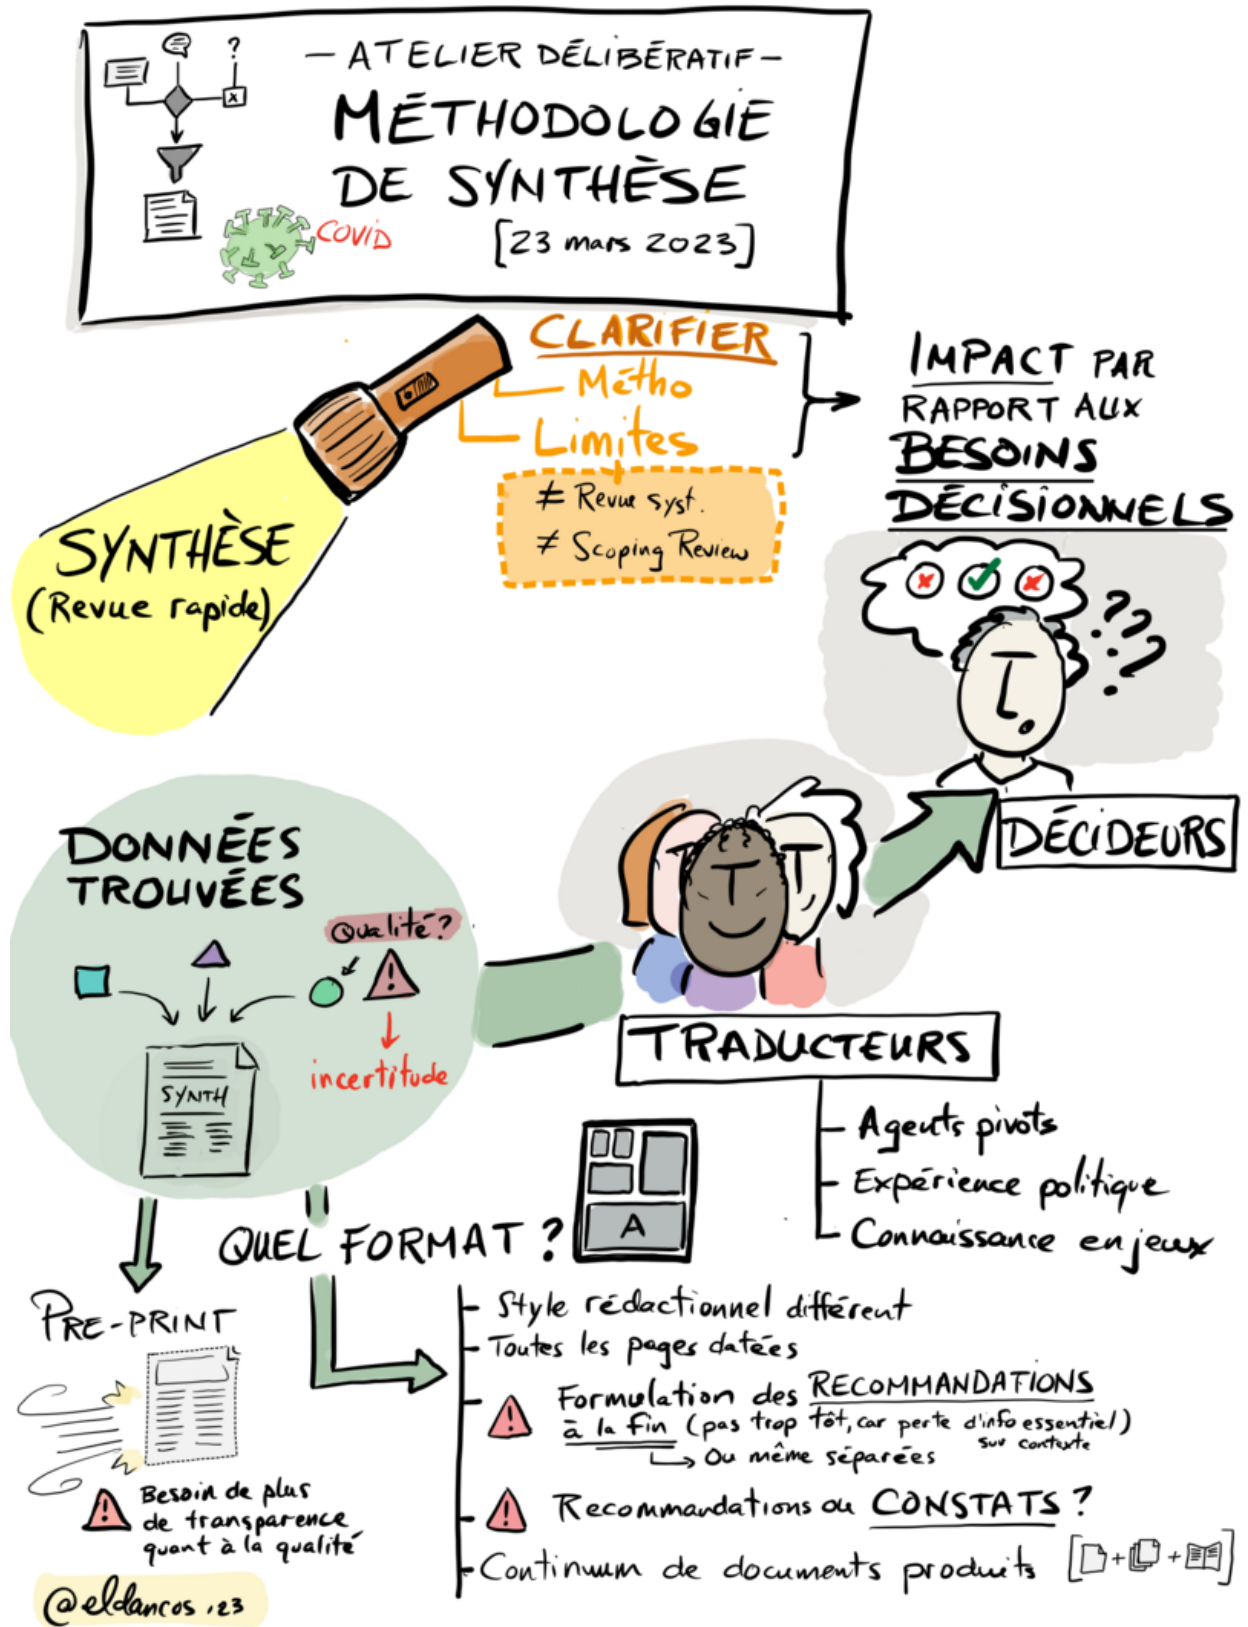 ?
x
- ATELIER DÉLIBÉRATIF -
MÉTHODOLOGIE
DE SYNTHÈSE
COVID
[23 mars 2023]
CLARIFIER
Métho
Limites
≠ Revue syst.
≠ Scoping Review
IMPACT PAR
RAPPORT AUX
BESOINS
DÉCISIONNELS
SYNTHÈSE
(Revue rapide)
????
DÉCIDEURS
DONNÉES
TROUVÉES
Qualité?
!
incertitude
SYNTH
TRADUCTEURS
- Agents pivots
- Expérience politique
- Connaissance enjeux
QUEL FORMAT ?
A
PRE-PRINT
! Besoin de plus
de transparence
quant à la qualité
- Style rédactionnel différent
- Toutes les pages datées
- ! Formulation des RECOMMANDATIONS
à la fin (pas trop tôt, car perte d'info essentiel)
sur contexte
Ou même séparées
- ! Recommandations ou CONSTATS ?
- Continuum de documents produits [ + + ]
@eldancos '23